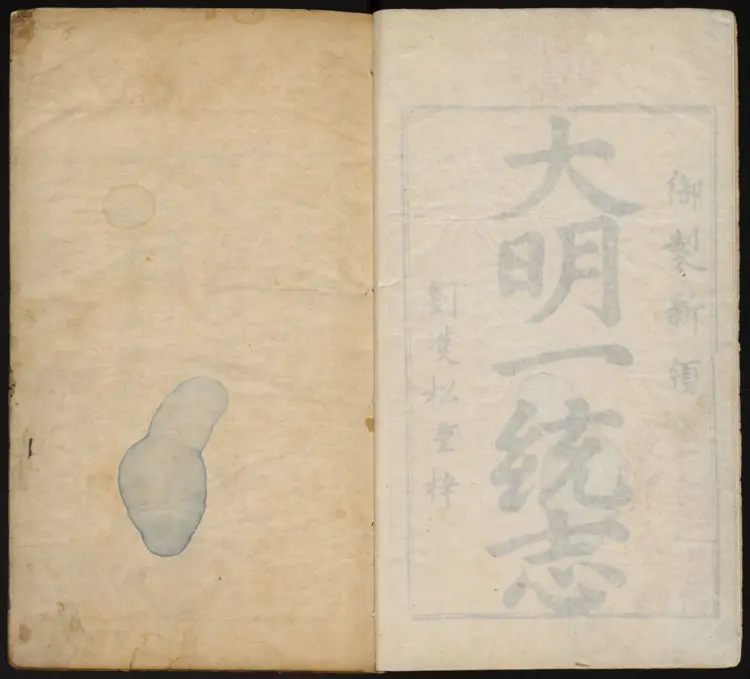 御製新頒
大明一統志
劉雙松重梓